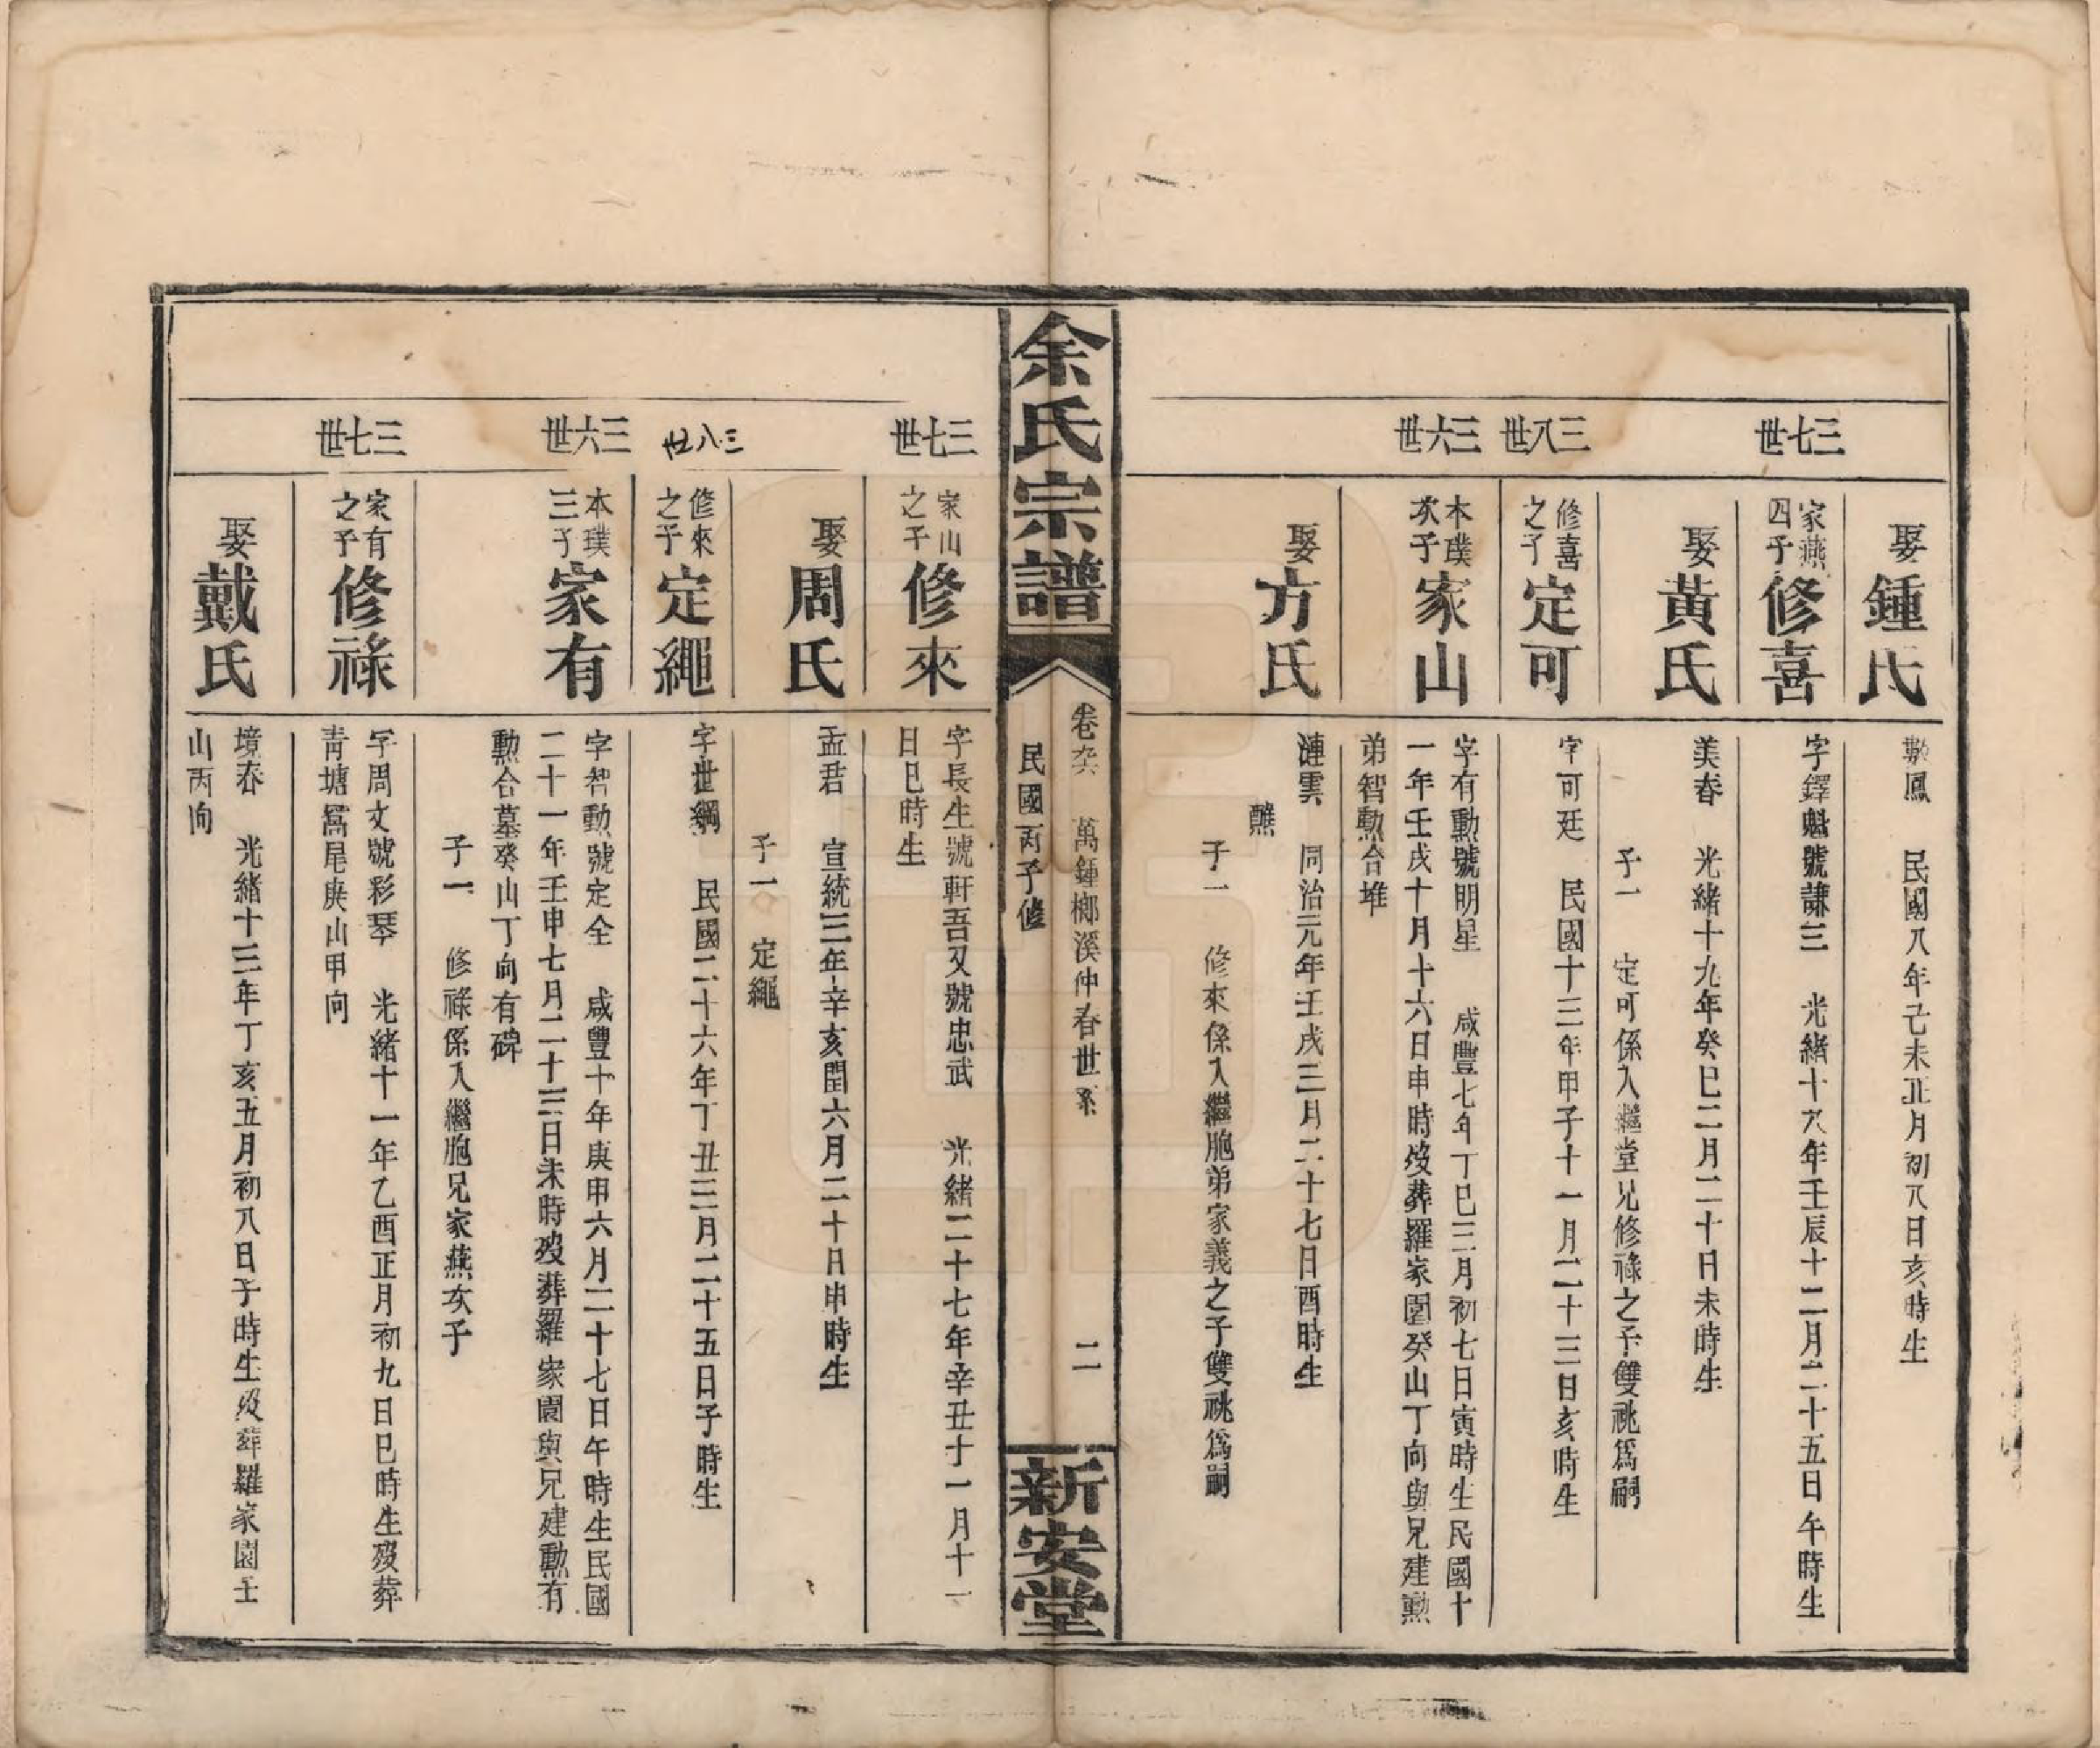 娶鍾氏
歎鳳　民國八年己未正月初八日亥時生
三七世
家燕四子修喜
字鐸魁號謙三　光緒十八年壬辰十二月二十五日午時生
娶黃氏
美春　光緒十九年癸巳二月二十日未時生
子一　定可係入繼堂兄修祿之子雙祧爲嗣
三八世
修喜之子定可
字可廷　民國十三年甲子十一月二十三日亥時生
三六世
本璞次子家山
字有勳號明星　咸豐七年丁巳三月初七日寅時生民國十
一年壬戌十月十六日申時歿葬羅家園癸山丁向與兄建勳
弟智勳合堆
娶方氏
漣雲　同治元年壬戌三月二十七日酉時生
醮
子一　修來係入繼胞弟家義之子雙祧爲嗣
余氏宗譜
卷癸　萬鍾榔溪仲春世系　二
民國丙子修
新安堂
三七世
家山之子修來
字長生號軒吾又號忠武　光緒二十七年辛丑十一月十一
日巳時生
娶周氏
孟君　宣統三年辛亥閏六月二十日申時生
子一　定繩
三八世
修來之子定繩
字世綱　民國二十六年丁丑三月二十五日子時生
三六世
本璞三子家有
字智勳號定全　咸豐十年庚申六月二十七日午時生民國
二十一年壬申七月二十三日未時歿葬羅家園與兄建勳有
勳合墓癸山丁向有碑
子一　修祿係入繼胞兄家燕次子
三七世
家有之子修祿
字周文號彩琴　光緒十一年乙酉正月初九日巳時生歿葬
青塘窩尾庚山甲向
娶戴氏
境春　光緒十三年丁亥五月初八日子時生歿葬羅家園壬
山丙向